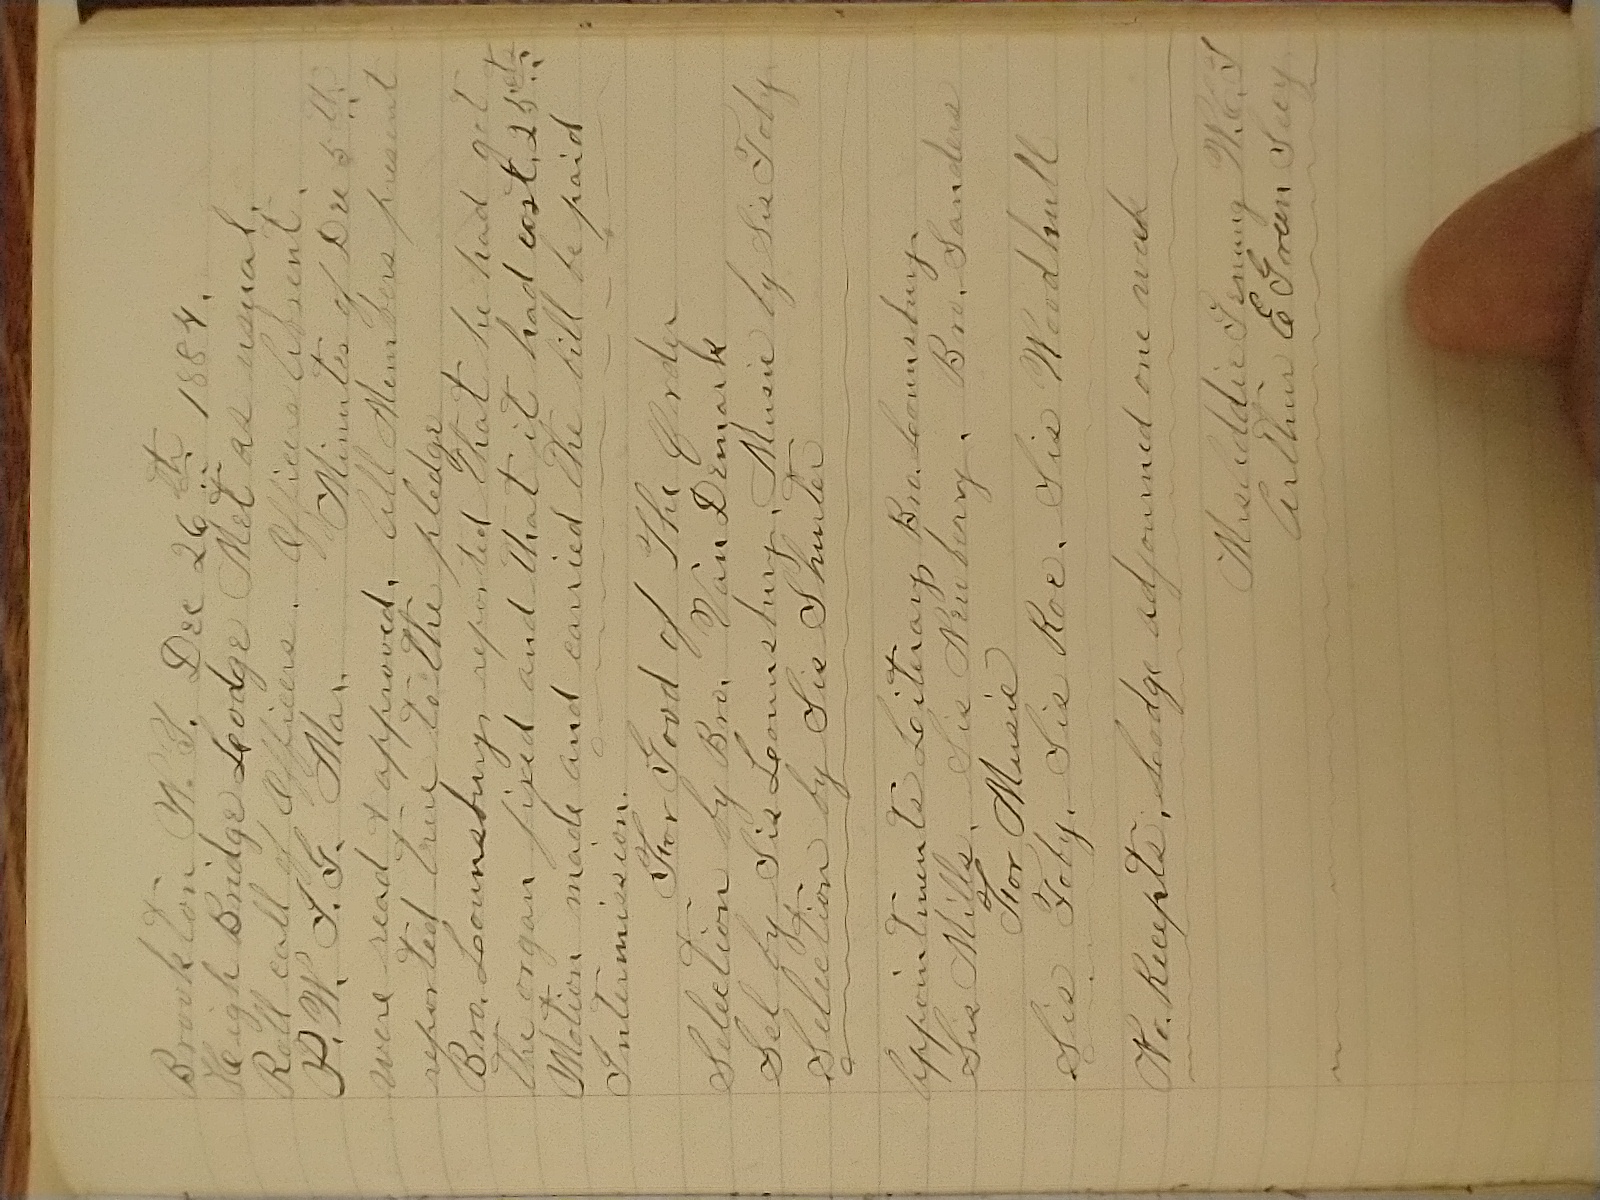 Brookton N. Y. Dec 26th 1884.
Heigh Bridge Lodge Met as usual,
Roll call of Officers. Officers absent.
P. W. C. T. Mar. Minutes of Dec 5th
were read & approved, All Members present
reported true to the pledge
Bro. Lounsbury reported that he had got
the organ fixed and that it had cost, 25cts
Motion made and carried the bill be paid
Intermission.
For Good of The Order
Selection by Bro. Van Demark
Sel by Sis Lounsbury, Music by Sis Toby
Selection by Sis Shurter
Appointments Leiterary Bro. Lounsbury
Sis Mills, Sis Newberry. Bro. Sanders
For Music
Sis Toby, Sis Roe. Sis Woodhull
No. Recepts, Lodge adjourned one week
Miss Addie Genung W.C.T
Arthur E Green Secy.